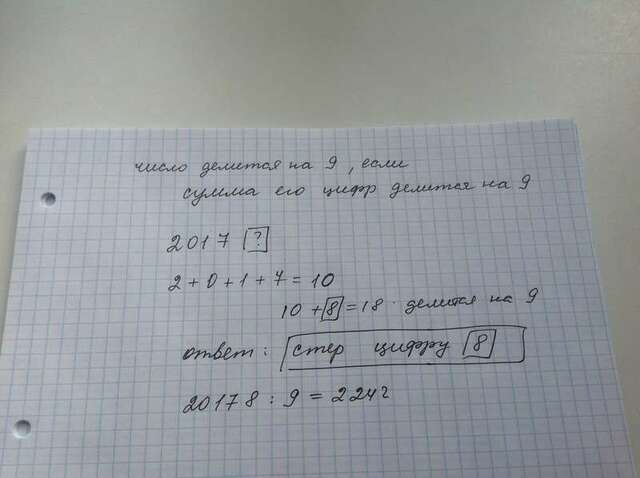 число делится на 9, если
сумма его цифр делится на 9
2017 ?
2+0+1+7=10
10+8=18 делится на 9
ответ: стер цифру 8
20178 : 9 = 2242